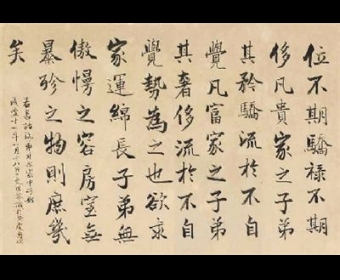 位不期驕祿不期
侈凡貴家之子弟
其矜驕流於不自
覺凡富家之子弟
其奢侈流於不自
覺勢為之也欲求
家運綿長子弟無
傲慢之容房室無
暴殄之物則庶幾
矣